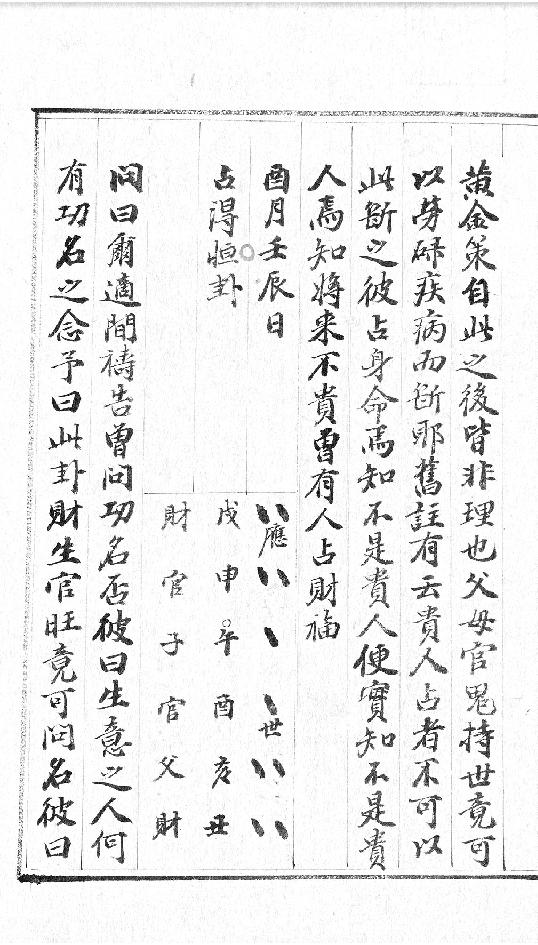 黃金策自此之後皆非理也父母官鬼持世竟可
以勞碌疾病而斷耶舊註有云貴人占者不可以
此斷之彼占身命焉知不是貴人便實知不是貴
人焉知將來不貴曾有人占財福
酉月壬辰日
占得恒卦
應
世
戌申午酉亥丑
財官子官父財
問曰爾適間禱告曾問功名否彼曰生意之人何
有功名之念予曰此卦財生官旺竟可問名彼曰